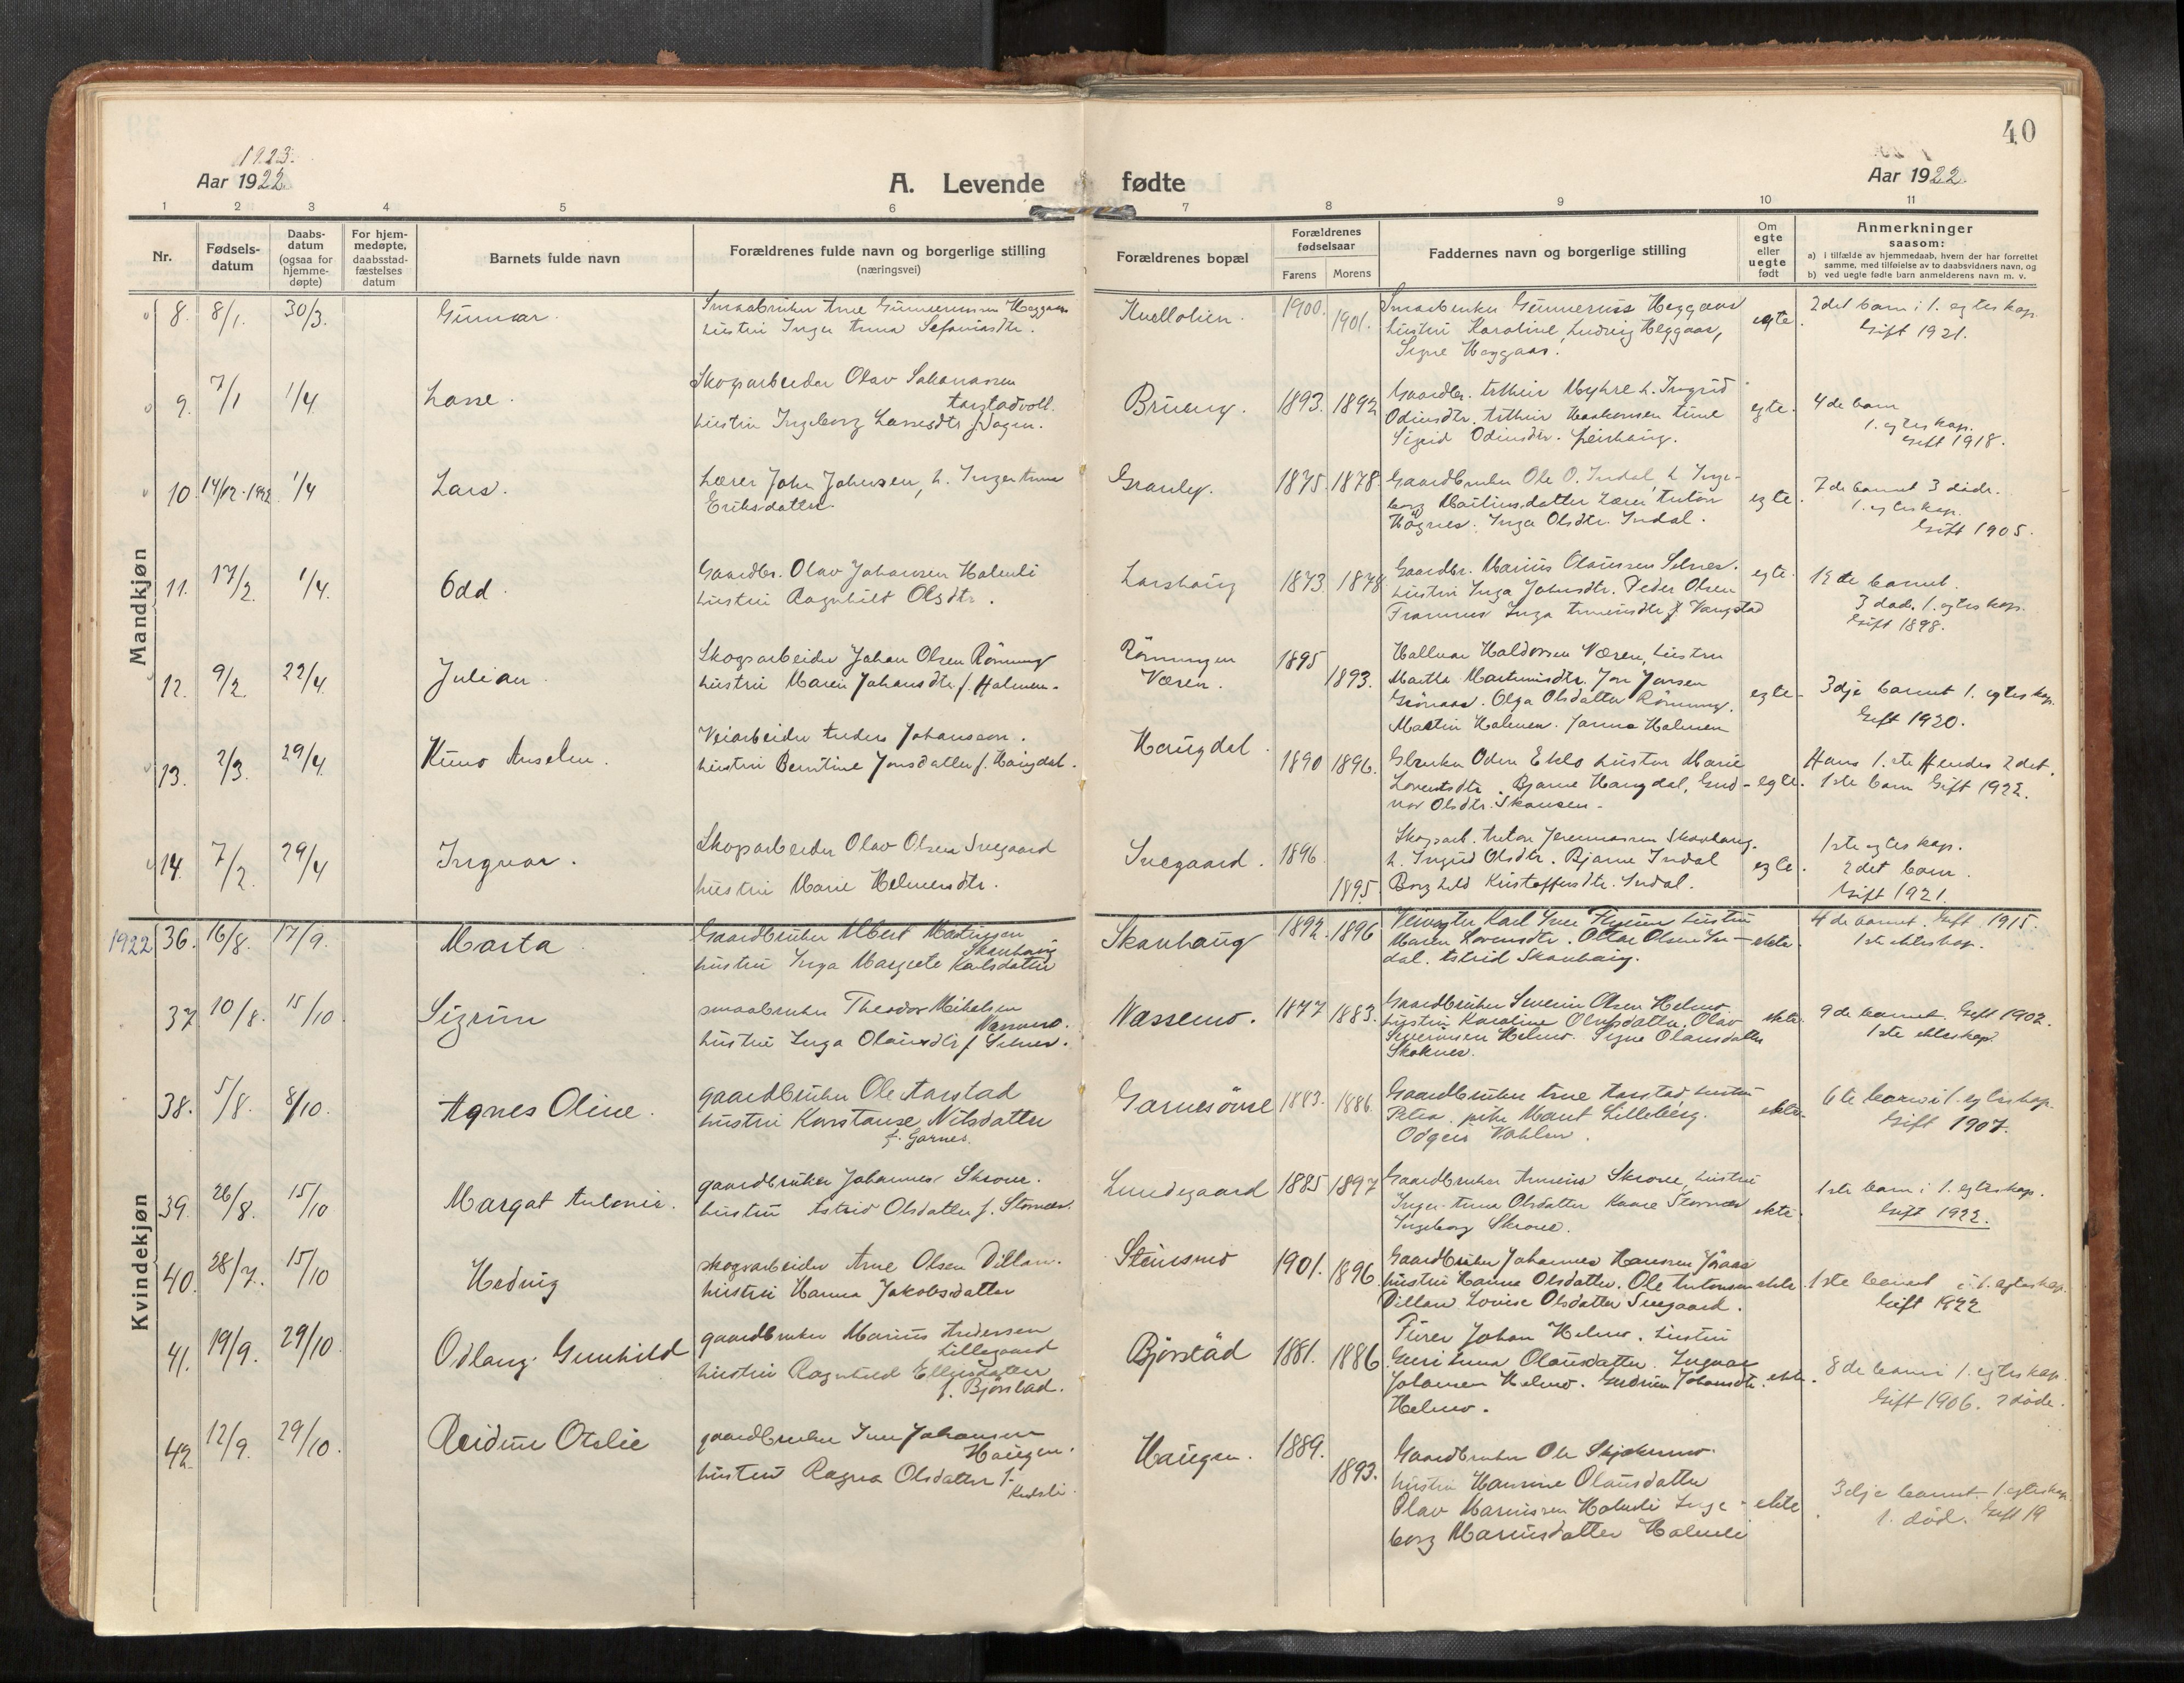 40
1923.
Aar 1922
A. Levende fødte
Aar 1922
1 2 3 4 5 6 7 8 9 10 11
Nr.
Fødsels-
datum
Daabs-
datum
(ogsaa for
hjemme-
døpte)
For hjem-
medøpte,
daabsstad-
fæstelses
datum
Barnets fulde navn
Forældrenes fulde navn og borgerlige stilling
(næringsvei)
Forældrenes bopæl
Forældrenes
fødselsaar
Farens Morens
Faddernes navn og borgerlige stilling
Om
egte
eller
uegte
født
Anmerkninger
saasom:
a) i tilfælde av hjemmedaab, hvem der har forrettet
samme, med tilføielse av to daabsvidners navn, og
b) ved uegte fødte barn anmelderens navn m. v.
Mandkjøn
8. 8/1. 30/3. Gunnar.
Smaabruker Arne Gunnerussen Heggaas
hustru Inger Anna Sefaniasdtr.
1900. 1901.
Smaabruker Gunnerius Heggaas
hustru Karoline, Ludvig Heggaas,
Signe Heggaas.
egte.
2det barn i 1. egteskap.
Gift 1921.
9. 7/1 1/4 Lasse.
Skogsarbeider Olav Johanassen
hustru Ingeborg Lassesdtr f. Dagen.
1893. 1892
Gaardbr. Arthur Myhre h. Ingrid
Odinsdtr. Arthur Haakonsen
Sigrid Odinsdtr.
egte.
4de barn
1. egteskap.
Gift 1918.
10. 14/12-1922 1/4 Lars.
Lærer John Johnsen, h. Inger Anna
Eriksdatter
Granby.
1875. 1878.
Gaardbruker Ole O. Indal, h. Inge-
borg Martinusdatter Lærer Anton
Høgnes. Inga Olsdtr. Indal.
egte.
7de barnet 3 døde.
1. egteskap.
Gift 1905.
11. 17/2. 1/4. Odd.
Gaardbr. Olav Johansen Holmli
hustru Ragnhild Olsdtr.
Larshaug
1873. 1878
Gaardbr. Marius Olaussen Selnes.
hustru Inga Johnsdtr. Peder Olsen
Inga f. Vangstad
egte.
3 døde. 1. egteskap.
Gift 1898.
12. 9/2. 22/4. Julian.
Skogsarbeider Johan Olsen Rønning
hustru Maren Johansdtr f. Holmen.
Rønningen
Væren.
1895 1893.
Hallvar Haldorsen Væren, hustru
Martha Martinusdtr. Jon Jonsen
Grønaas. Olga Olsdatter Rønning.
Martin Holmen. Janna Holmen
egte.
3dje barnet 1. egteskap.
Gift 1920.
13. 2/3. 29/4. Kuno Anselm.
Veiarbeider Anders Johansen.
hustru Berntine Jonsdatter f. Haugdal.
Haugdal.
1890 1896.
Gbruker Odin Eklo hustru Marie
Lorentsdtr. Bjarne Haugdal, Gud-
run Olsdtr. Skansen.
egte.
Hans 1.ste Hendes 2det.
1ste barn Gift 1922.
14. 7/2. 29/4 Ingvar.
Skogsarbeider Olav Olsen Suegaard
hustru Marie Helmersdtr.
Suegaard.
1896. 1895
Skogsarb. Anton Jeremiassen Skavhaug.
h. Ingrid Olsdtr. Bjarne Indal
Borghild Kristoffersdtr. Indal.
egte.
1ste egteskap.
2det barn.
Gift 1921.
Kvindekjøn
1922 36. 16/8. 17/9. Marta
Gaardbruker Albert Martinsen
Skavhaug
hustru Inga Margrete Karlsdatter
Skavhaug
1892. 1896
Karl hustru
Maren Lorensdtr. Ottar Olsen In-
dal. Astrid Skavhaug.
ekte.
4de barnet. Gift 1915.
1ste ekteskap.
37 10/8. 15/10. Sigrun
smaabruker Theodor Mikelsen
Nessemo.
hustru Inga Olausdtr f. Selnes.
Nessemo.
1877 1883.
Gaardbruker Severin Olsen Helmo
hustru Karoline Olufsdatter. Olav
Severinsen Helmo. Signe Olausdatter
Skoknes.
ekte.
9de barnet. Gift 1902.
1ste ekteskap.
38. 5/8. 8/10. Agnes Oline.
gaardbruker Ole Aarstad
hustru Konstanse Nilsdatter
f. Garnes.
Garnes øvre
1883. 1886.
Gaardbruker Arne Aarstad, hustru
Petra. pike Marit Lilleberg.
Odgeir
ekte.
6te barn i 1. egteskap.
Gift 1907.
39. 26/8. 15/10 Margat Antonie.
gaardbruker Johannes Skrove.
hustru Astrid Olsdatter f. Stornes.
Lundegaard
1885 1897
Gaardbruker Skrove, hustru
Inger Anna Olsdatter Kaare Stornes
Ingeborg Skrove.
ekte.
1ste barn i 1. egteskap.
Gift 1922.
40. 28/7. 15/10 Hedvig
skogsarbeider Arne Olsen Dillan.
hustru Hanna Jakobsdatter
Steinsmo
1901. 1896
Gaardbruker Johannes Hanssen
hustru Hanna Olsdatter. Ole Antonsen
Dillan Lovise Olsdatter Suegaard.
ekte.
1ste barnet i 1. egteskap.
Gift 1922
41. 19/9. 29/10. Odlaug Gunhild
gaardbruker Marius Andersen
Lillegaard
hustru Ragnhild Ellingsdatter
f. Bjørstad.
Bjørstad
1881. 1886
Furer Johan Helmo. hustru
Guri Anna Olausdatter. Ingvar
Johansen Helmo. Gudrun Johansdtr.
Helmo.
ekte.
8de barn i 1. egteskap.
Gift 1906. 2 døde.
42. 12/9. 29/10. Reidun Otelie
gaardbruker Iver Johansen
Haugen.
hustru Ragna Olsdatter f.
Haugen.
1889. 1893.
Gaardbruker Ole Skjækermo.
hustru Hansine Olausdatter
Olav Mariussen Holmli Inge-
borg Mariusdatter Holmli
ekte
3dje barnet. 1. egteskap
1. død. Gift 19